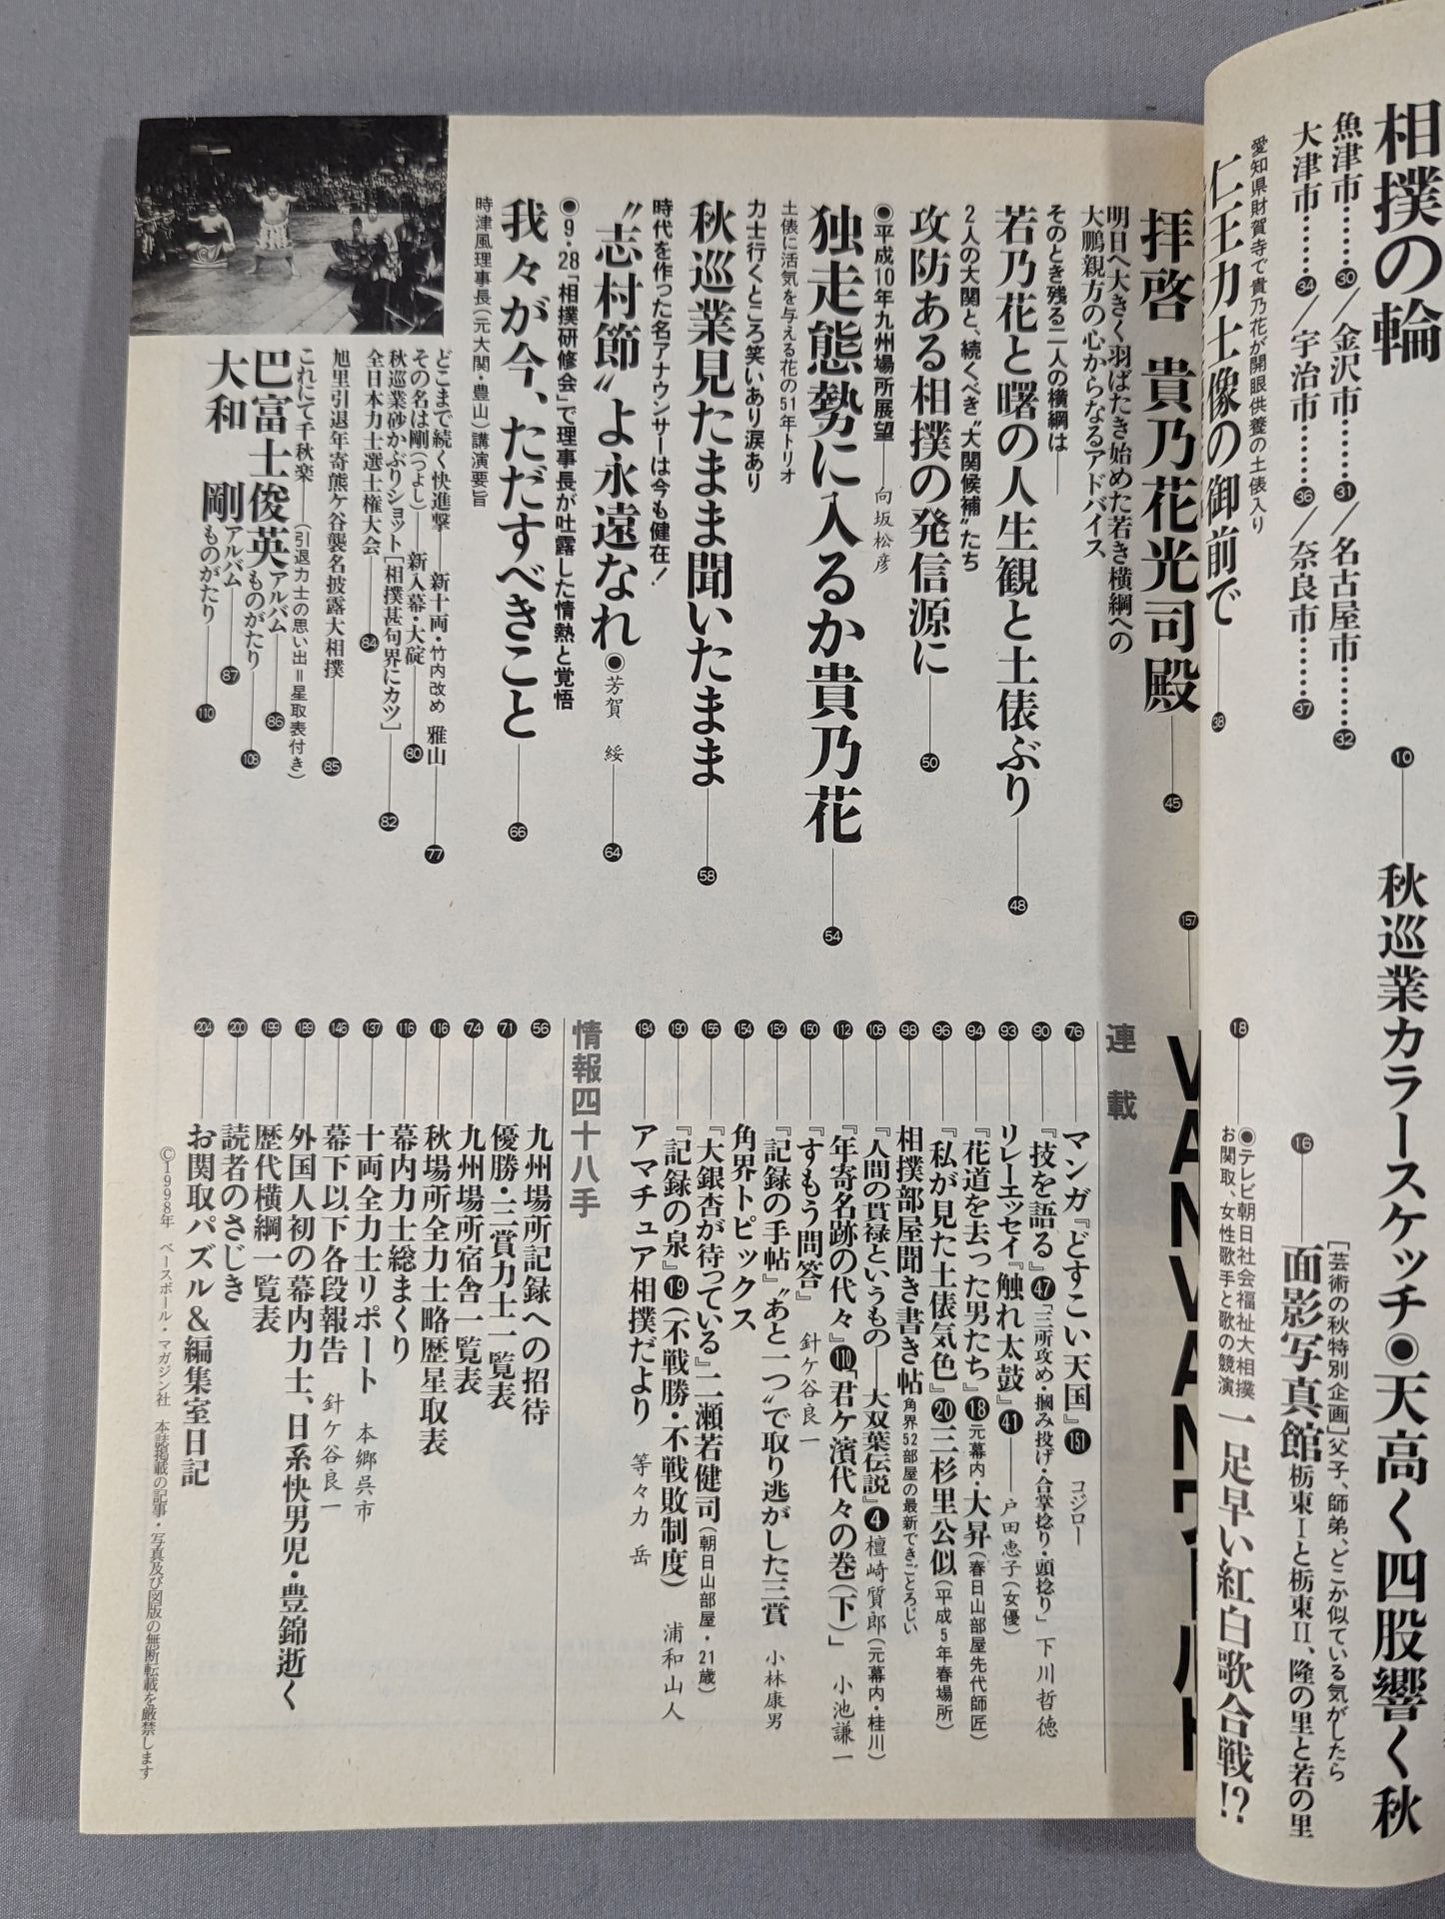 相撲の輪
魚津市……30／金沢市……31／名古屋市……32
大津市……34／宇治市……36／奈良市……37
愛知県財賀寺で貴乃花が開眼供養の土俵入り
仁王力士像の御前で 38
10 秋巡業カラースケッチ◉天高く四股響く秋
16 [芸術の秋特別企画]父子、師弟、どこか似ている気がしたら
面影写真館 栃東Ⅰと栃東Ⅱ、隆の里と若の里
18 ◉テレビ朝日社会福祉大相撲
お関取、女性歌手と歌の競演
一足早い紅白歌合戦!?
拝啓 貴乃花光司殿 45
明日へ大きく羽ばたき始めた若き横綱への
大鵬親方の心からなるアドバイス
そのとき残る二人の横綱は――
若乃花と曙の人生観と土俵ぶり 48
2人の大関と、続くべき“大関候補”たち
攻防ある相撲の発信源に 50
◉平成10年九州場所展望――向坂松彦
独走態勢に入るか貴乃花 54
土俵に活気を与える花の51年トリオ
力士行くところ笑いあり涙あり
秋巡業見たまま聞いたまま 58
時代を作った名アナウンサーは今も健在！
“志村節”よ永遠なれ◉芳賀 綏 64
◉9・28「相撲研修会」で理事長が吐露した情熱と覚悟
我々が今、ただすべきこと 66
時津風理事長(元大関・豊山)講演要旨
どこまで続く快進撃――新十両・竹内改め 雅山 77
その名は剛(つよし)――新入幕・大碇 80
秋巡業砂かぶりショット[相撲甚句界にカツ] 82
全日本力士選士権大会 84
旭里引退年寄熊ケ谷襲名披露大相撲 85
これにて千秋楽――(引退力士の思い出＝星取表付き)
巴富士俊英 アルバム 86 ものがたり 108
大和 剛 アルバム 87 ものがたり 110
157
連載
76 マンガ『どすこい天国』151 コジロー
90 『技を語る』47「三所攻め・掴み投げ・合掌捻り・頭捻り」 下川哲徳
93 リレーエッセイ『触れ太鼓』41――戸田恵子(女優)
94 『花道を去った男たち』18元幕内・大昇(春日山部屋先代師匠)
96 『私が見た土俵気色』20三杉里公似(平成5年春場所)
98 相撲部屋聞き書き帖 角界52部屋の最新できごとろじい
105 『人間の貫禄というもの――大双葉伝説』4檀崎質郎(元幕内・桂川)
112 『年寄名跡の代々』110「君ケ濱代々の巻(下)」 小池謙一
150 『すもう問答』 針ケ谷良一
152 『記録の手帖』“あと一つ”で取り逃がした三賞 小林康男
154 角界トピックス
155 『大銀杏が待っている』二瀬若健司(朝日山部屋・21歳)
190 『記録の泉』19(不戦勝・不戦敗制度) 浦和山人
194 アマチュア相撲だより 等々力 岳
情報四十八手
56 九州場所記録への招待
71 優勝・三賞力士一覧表
74 九州場所宿舎一覧表
116 秋場所全力士略歴星取表
116 幕内力士総まくり
137 十両全力士リポート 本郷呉市
146 幕下以下各段報告 針ケ谷良一
189 外国人初の幕内力士、日系快男児・豊錦逝く
199 歴代横綱一覧表
200 読者のさじき
204 お関取パズル＆編集室日記
©1998年 ベースボール・マガジン社 本誌掲載の記事・写真及び図版の無断転載を厳禁します